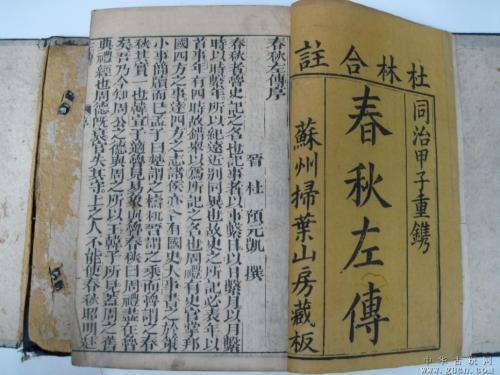 杜林合註
同治甲子重鐫
春秋左傳
蘇州掃葉山房藏板
春秋左傳序
晉 杜 預元凱 撰
春秋者魯史記之名也記事者以事繫日以日繫月以月繫
時以時繫年所以紀遠近別同異也故史之所記必表年以
首事年有四時故錯舉以為所記之名也周禮有史官掌邦
國四方之事達四方之志諸侯亦各有國史大事書之於策
小事簡牘而已孟子曰楚謂之檮杌晉謂之乘而魯謂之春
秋其實一也韓宣子適魯見易象與魯春秋曰周禮盡在魯
矣吾乃今知周公之德與周之所以王韓子所見蓋周之舊
典禮經也周德既衰官失其守上之人不能使春秋昭明赴
中华古玩网
www.gucn.com